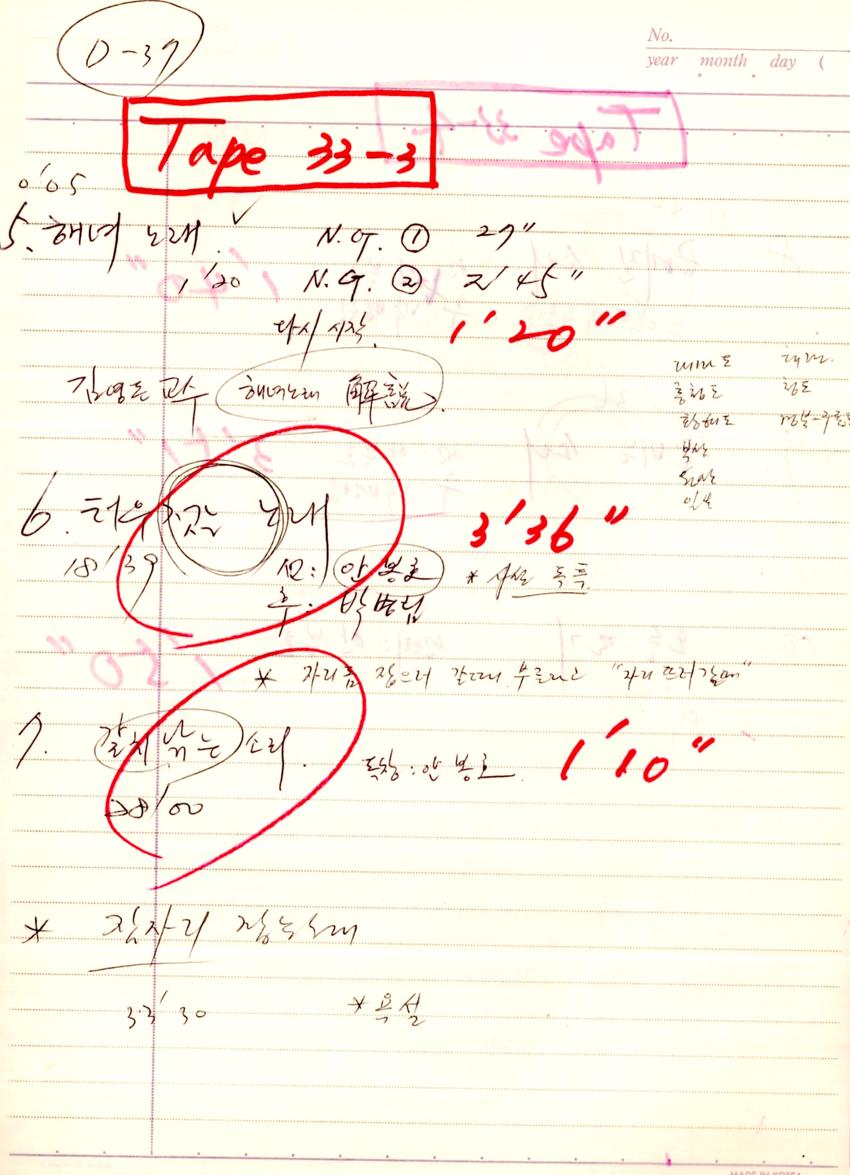 D-37
No.
year month day (
Tape 33-3
0'05
5. 해녀 노래 ✓ N.G. ① 27"
1'20 N.G. ② 2'45"
다시 시작. 1'20"
김영돈 교수 해녀노래 解說
대마도
흥청도 청도
황해도
부산
울산
일산
6. 터우 젓는 노래 3'36"
18'39 선: 안봉호 * 사설 독특
후:
* 자리돔 잡으러 갈때 부르라고 "자리 뜨러갈때"
7. 갈치 낚는 소리. 독창: 안봉호 1'10"
28'00
* 잠자리 잡는노래
33'30 * 욕설
MADE IN KOREA